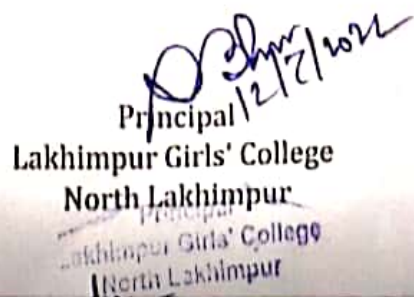 12/7/2022
Principal
Lakhimpur Girls' College
North Lakhimpur
Principal
Lakhimpur Girls' College
North Lakhimpur